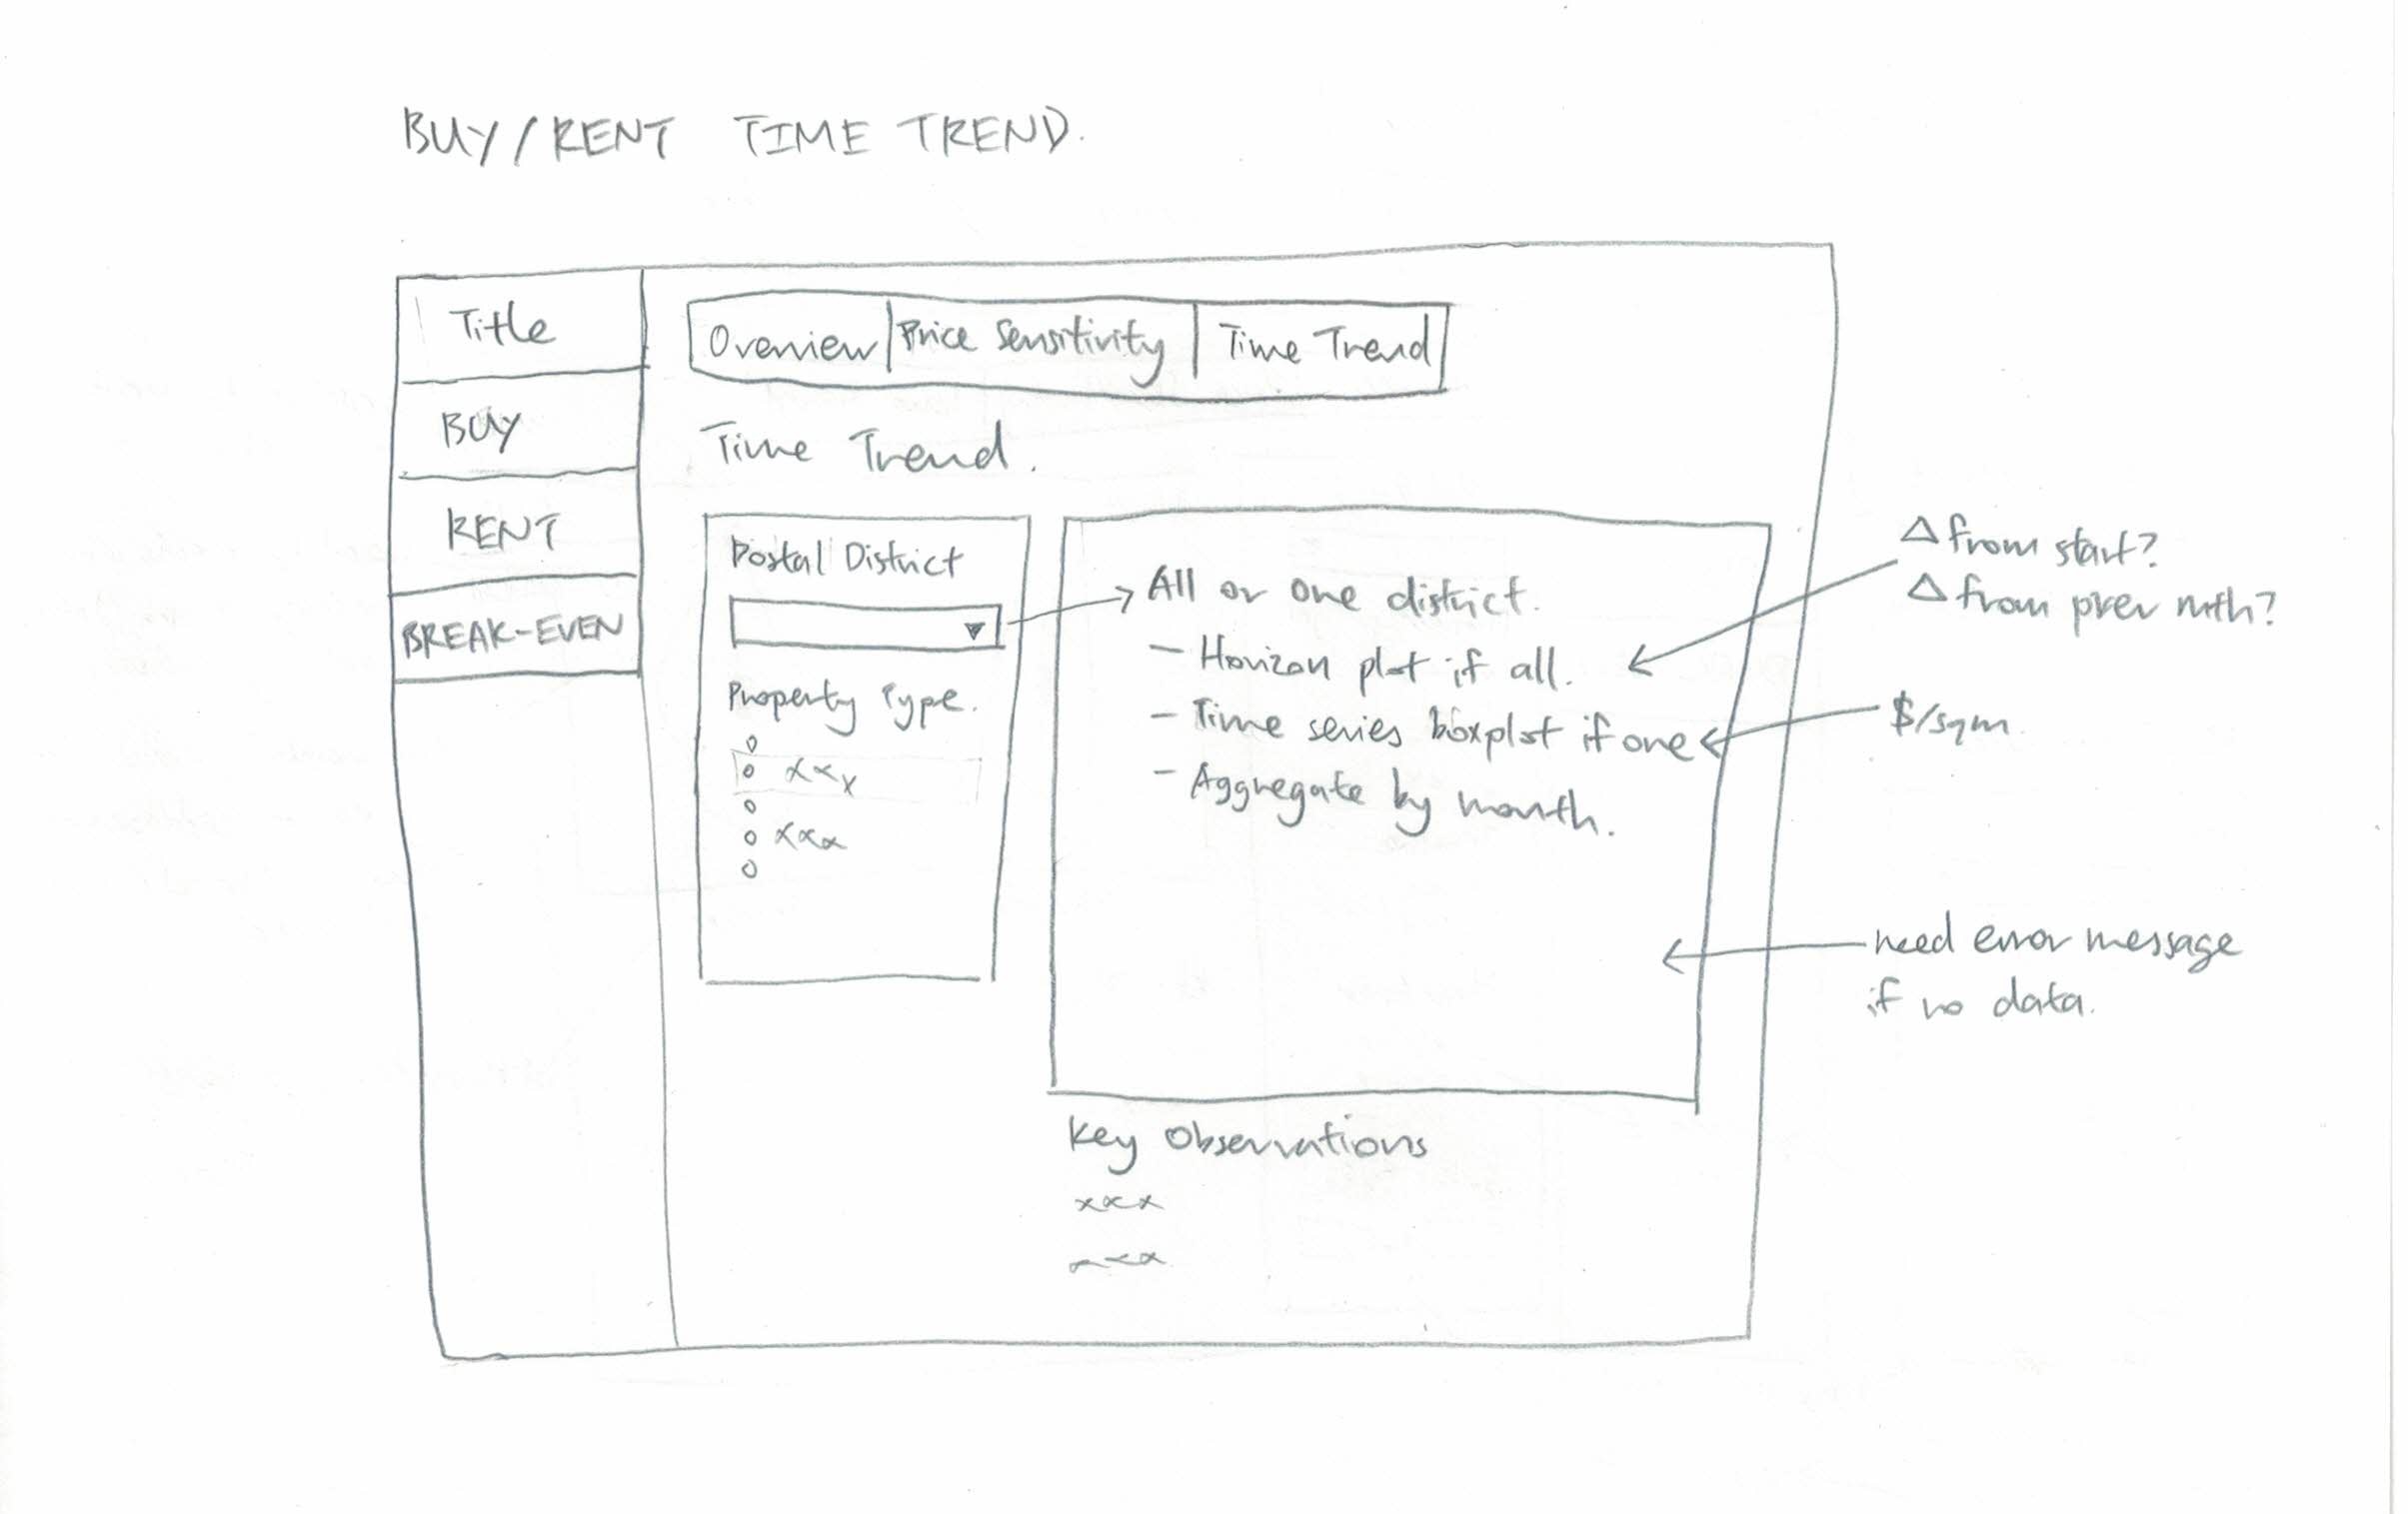 BUY/RENT TIME TREND.
Title
BUY
RENT
BREAK-EVEN
Overview
Price Sensitivity
Time Trend
Time Trend.
Postal District
Property Type.
xxx
xxx
All or one district.
- Horizon plot if all.
- Time series boxplot if one
- Aggregate by month.
Δ from start?
Δ from prev mth?
$/sqm
need error message
if no data.
Key Observations
xxx
xxx